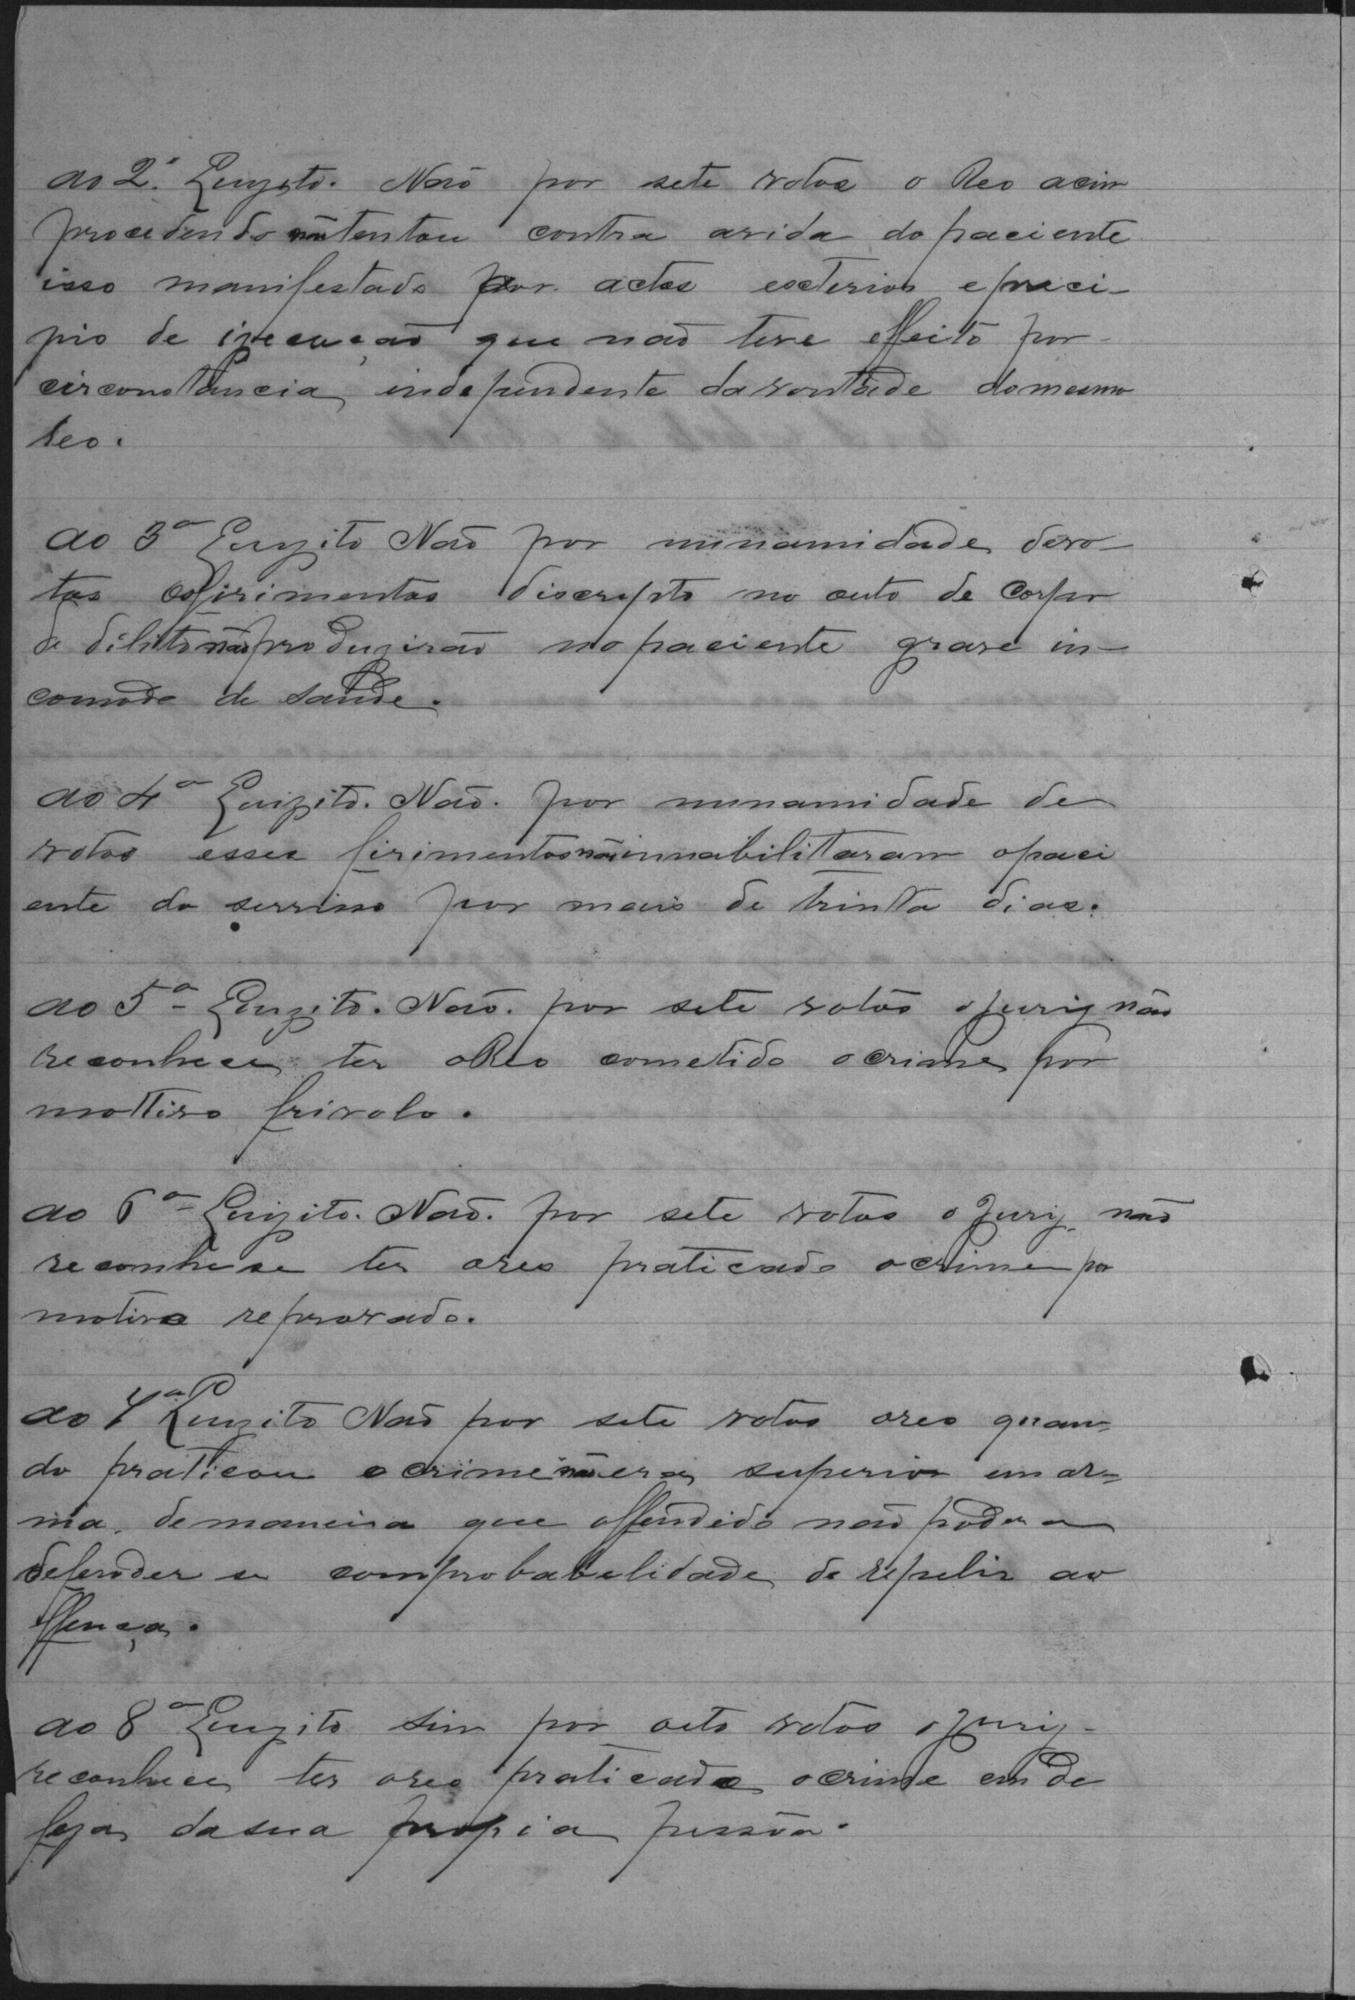 ao 2º Quizito. Não por sete votos o Reo acim
procedendo não tentou contra avida do paciente
isso manifestado por actos exterior e princi-
pio de izecução que não teve effeito por
circonstancia independente davontade domesmo
Reo.
ao 3º Quizito Não por nunamidade devo-
tos osfirimentos discripto no auto de Corpo
de dilito não produzirão no paciente grave in-
comodo de saude.
ao 4º Quizito. Não. por nunamidade de
votos esses firimentos não innabilittaram opaci
ente do serviso por mais de trinta dias.
ao 5º Quizito. Não. por sete votos ojury não
reconhece ter oReo cometido ocrime por
mottivo frivolo.
ao 6º Quizito. Não. por sete votos o Jury não
reconhese ter oreo praticado ocrime por
motivo reprovado.
ao 7º Quizito Não por sete votos oreo quan-
do praticou o crime não era superior em ar-
ma. demaneira que offendido não podera
defender se comprobabelidade de repelir ao
ffença.
ao 8º Quizito sim por oito votos o Jury
reconhece ter oreo praticado ocrime em de
feza dasua propia pessôa.